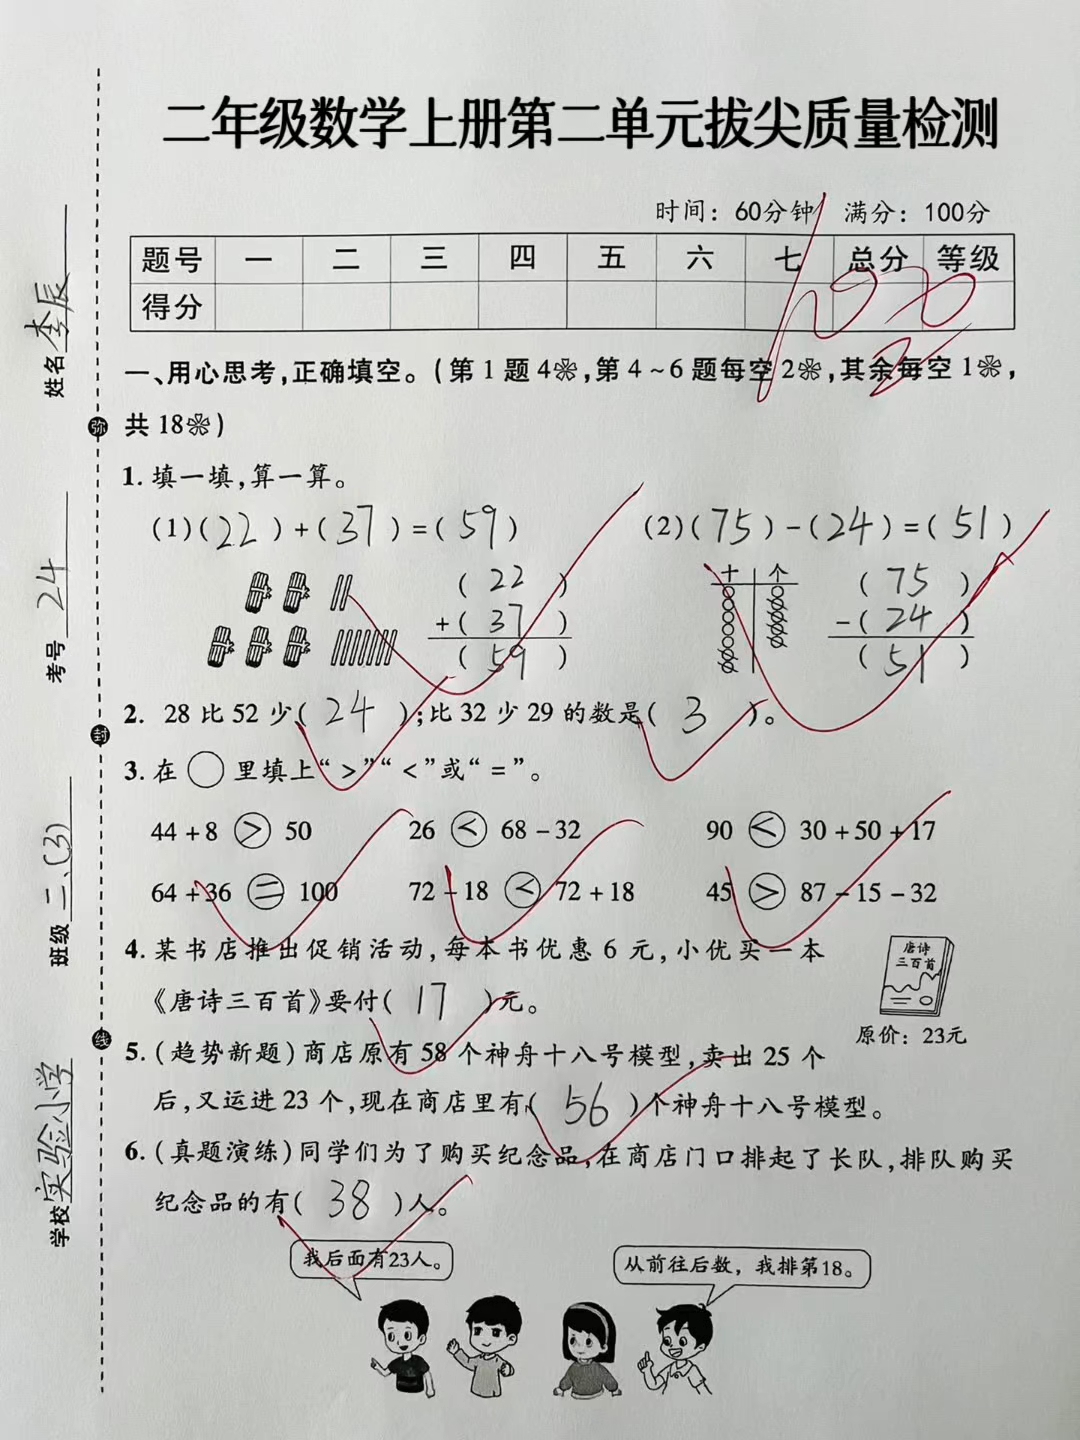 二年级数学上册第二单元拔尖质量检测
时间：60分钟 满分：100分
题号 一 二 三 四 五 六 七 总分 等级
得分
一、用心思考，正确填空。（第1题4❀，第4~6题每空2❀，其余每空1❀，
共18❀）
1. 填一填，算一算。
(1)(22)+(37)=(59) (2)(75)-(24)=(51)
(22) 十 个 (75)
+(37) -(24)
(59) (51)
2. 28比52少(24)；比32少29的数是(3)。
3. 在○里填上“>”“<”或“=”。
44+8 > 50 26 < 68-32 90 < 30+50+17
64+36 = 100 72-18 < 72+18 45 > 87-15-32
4. 某书店推出促销活动，每本书优惠6元，小优买一本
《唐诗三百首》要付(17)元。
唐诗
三百首
原价：23元
5. (趋势新题)商店原有58个神舟十八号模型，卖出25个
后，又运进23个，现在商店里有(56)个神舟十八号模型。
6. (真题演练)同学们为了购买纪念品，在商店门口排起了长队，排队购买
纪念品的有(38)人。
我后面有23人。 从前往后数，我排第18。
学校 实验小学 班级 二、(3) 考号 24 姓名 李辰
弥 封 线